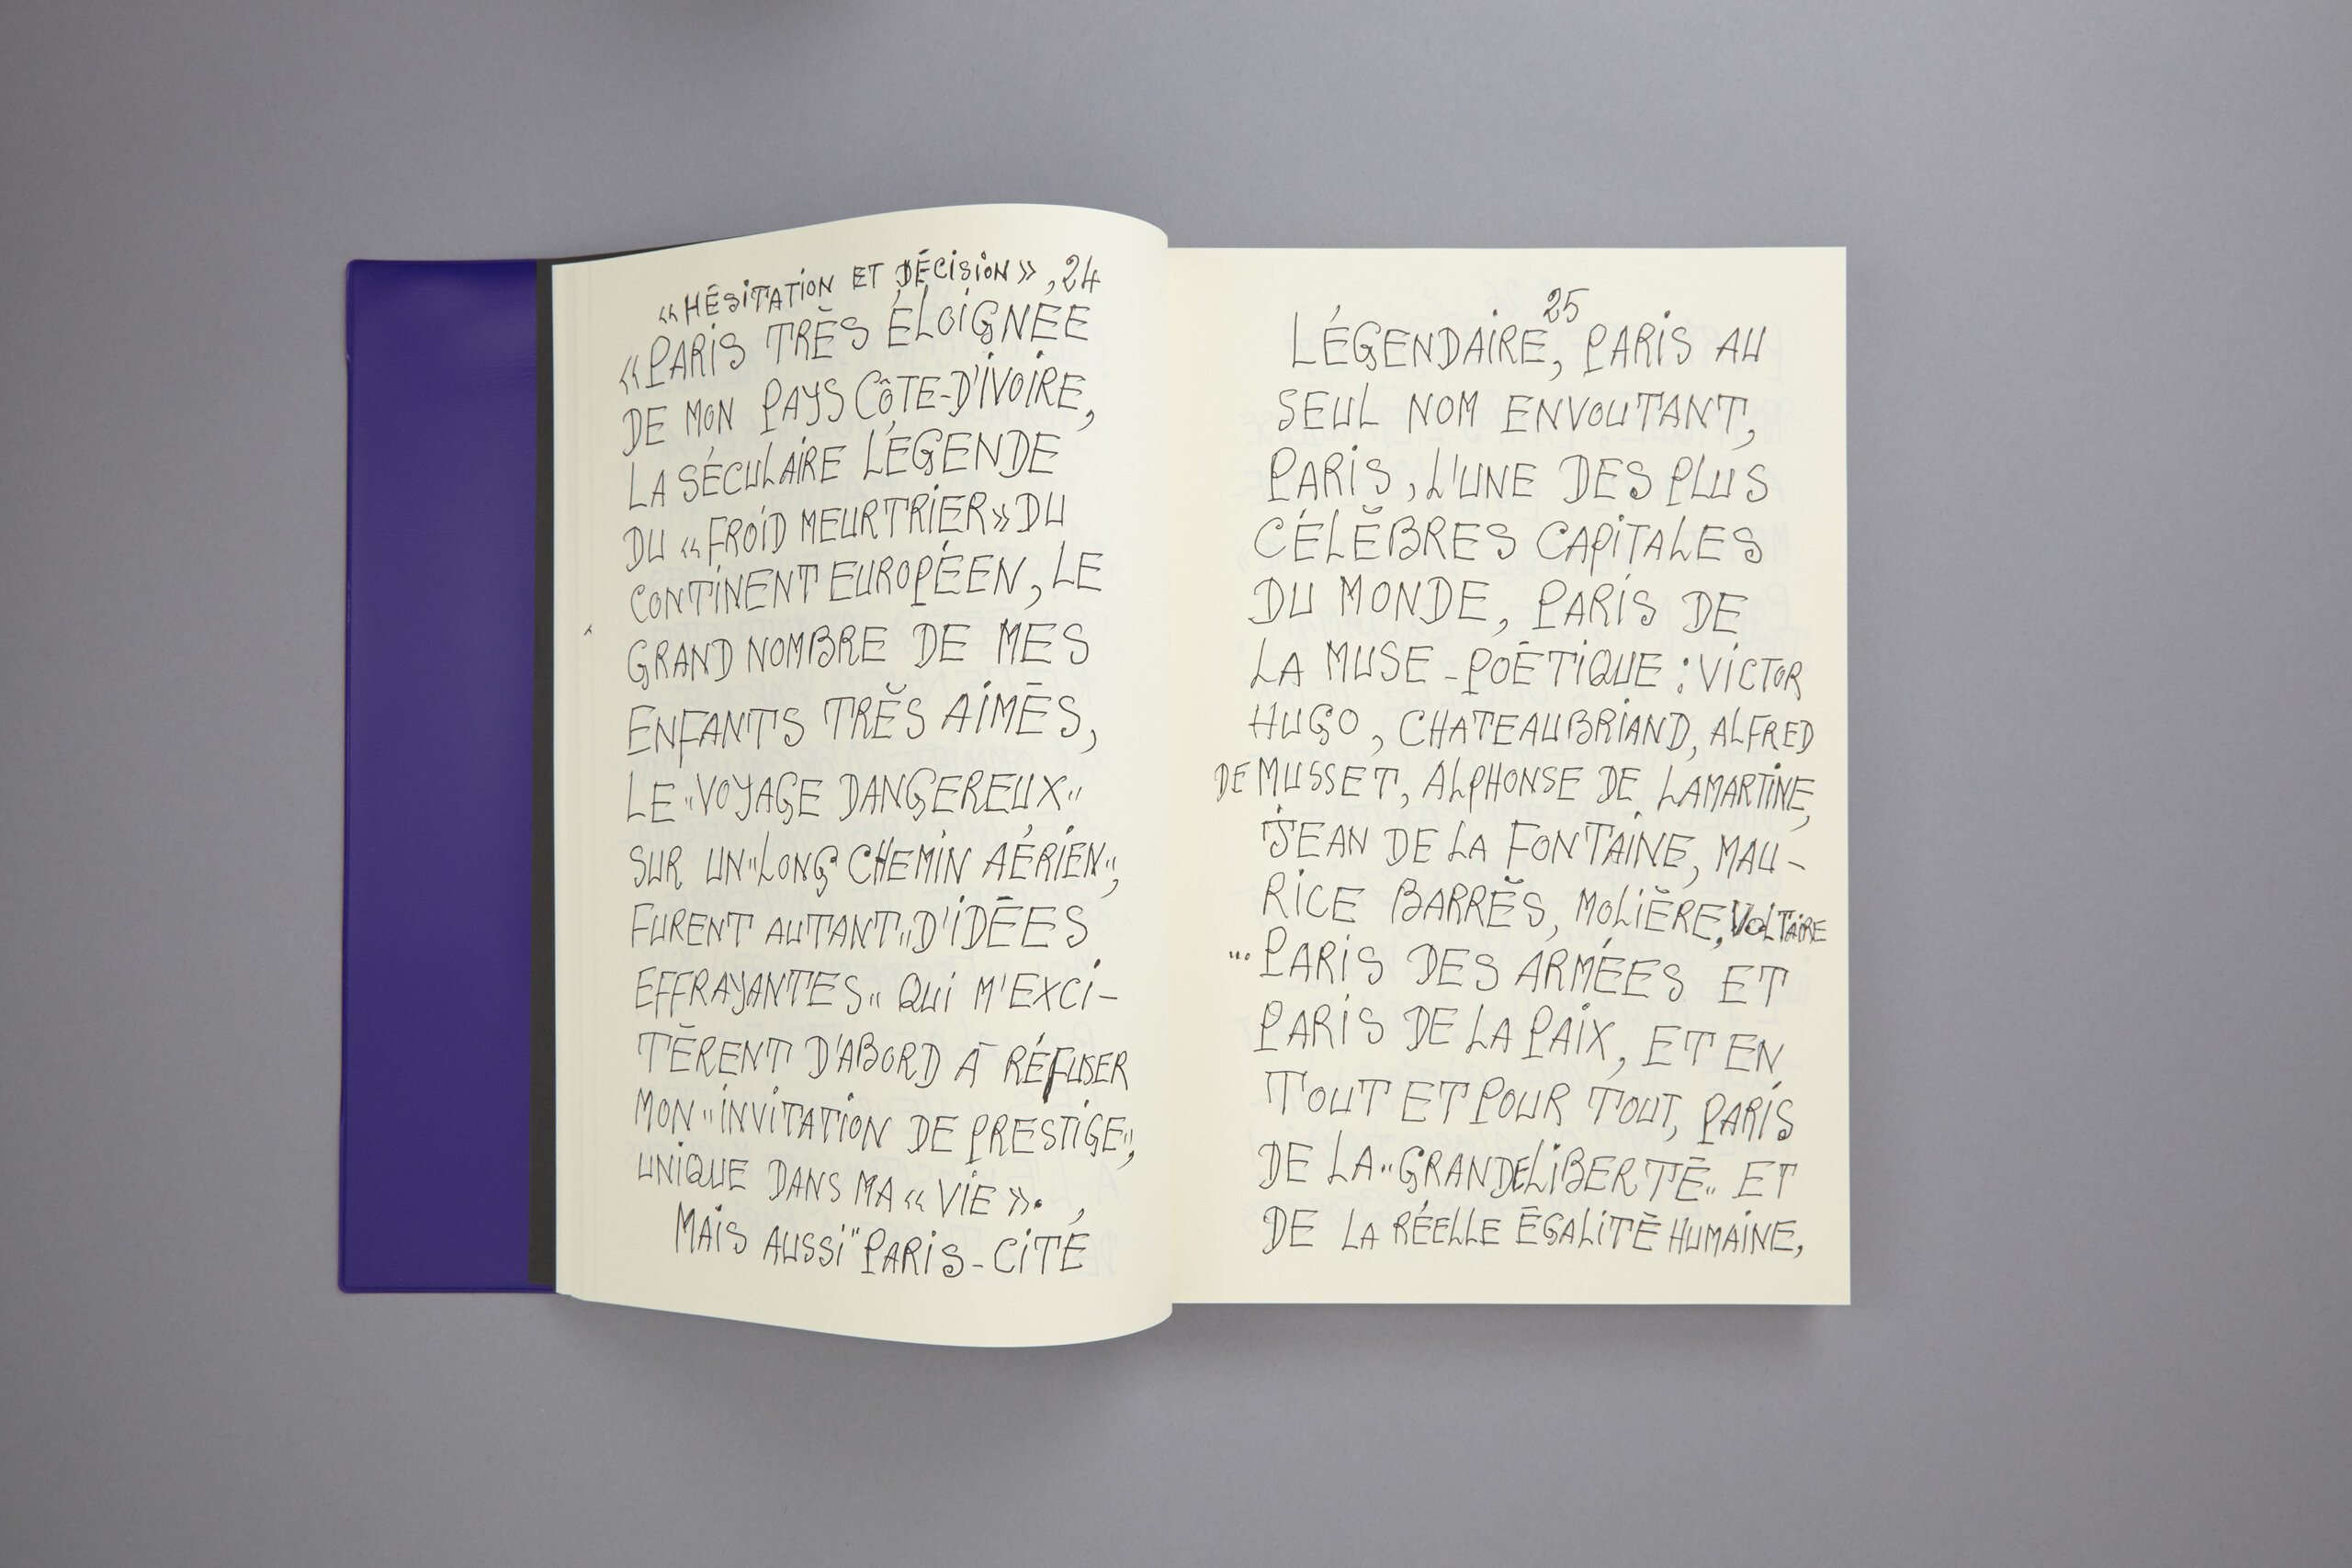 «HÉSITATION ET DÉCISION», 24
«PARIS TRÈS ÉLOIGNÉE
DE MON PAYS CÔTE-D'IVOIRE,
LA SÉCULAIRE LÉGENDE
DU «FROID MEURTRIER» DU
CONTINENT EUROPÉEN, LE
GRAND NOMBRE DE MES
ENFANTS TRÈS AIMÉS,
LE "VOYAGE DANGEREUX"
SUR UN "LONG CHEMIN AÉRIEN",
FURENT AUTANT "D'IDÉES
EFFRAYANTES" QUI M'EXCI-
TÈRENT D'ABORD À RÉFUSER
MON "INVITATION DE PRESTIGE",
UNIQUE DANS MA «VIE».
MAIS AUSSI "PARIS-CITÉ
25
LÉGENDAIRE, PARIS AU
SEUL NOM ENVOUTANT,
PARIS, L'UNE DES PLUS
CÉLÈBRES CAPITALES
DU MONDE, PARIS DE
LA MUSE-POÉTIQUE : VICTOR
HUGO, CHATEAUBRIAND, ALFRED
DE MUSSET, ALPHONSE DE LAMARTINE,
JEAN DE LA FONTAINE, MAU-
RICE BARRÈS, MOLIÈRE, VOLTAIRE
... PARIS DES ARMÉES ET
PARIS DE LA PAIX, ET EN
TOUT ET POUR TOUT, PARIS
DE LA "GRANDE LIBERTÉ" ET
DE LA RÉELLE ÉGALITÉ HUMAINE,